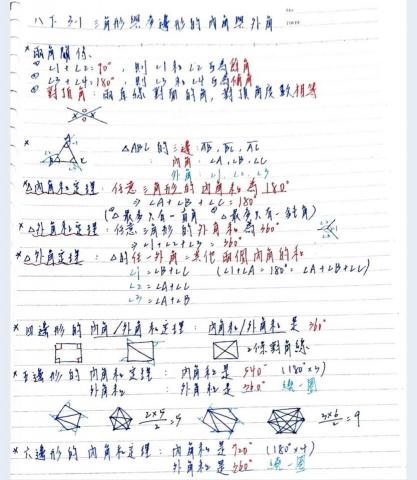 八下 3-1 三角形與多邊形的內角與外角
* 兩角關係:
① ∠1+∠2=90°,則∠1和∠2互為餘角
② ∠3+∠4=180°,則∠3和∠4互為補角
③ 對頂角:兩直線對面的角,對頂角度數相等
* △ABC 的三邊:AB, BC, AC
內角:∠A, ∠B, ∠C
外角:∠1, ∠2, ∠3
* △內角和定理:任意三角形的內角和為180°
⇒ ∠A+∠B+∠C=180°
(① △最多只有一直角 ② △最多只有一鈍角)
* △外角和定理:任意三角形的外角和為360°
⇒ ∠1+∠2+∠3=360°
* △外角定理:△的任一外角=其他兩個內角的和
∠1=∠B+∠C (∠1+∠A=180°=∠A+∠B+∠C)
∠2=∠A+∠C
∠3=∠A+∠B
* 四邊形的內角/外角和定理:內角和/外角和是360°
2條對角線
* 五邊形的內角和定理:內角和是540° (180°×3)
外角和:外角和是360° 繞一圈
2×5/2=5
3×6/2=9
* 六邊形的內角和定理:內角和是720° (180°×4)
外角和是360° 繞一圈